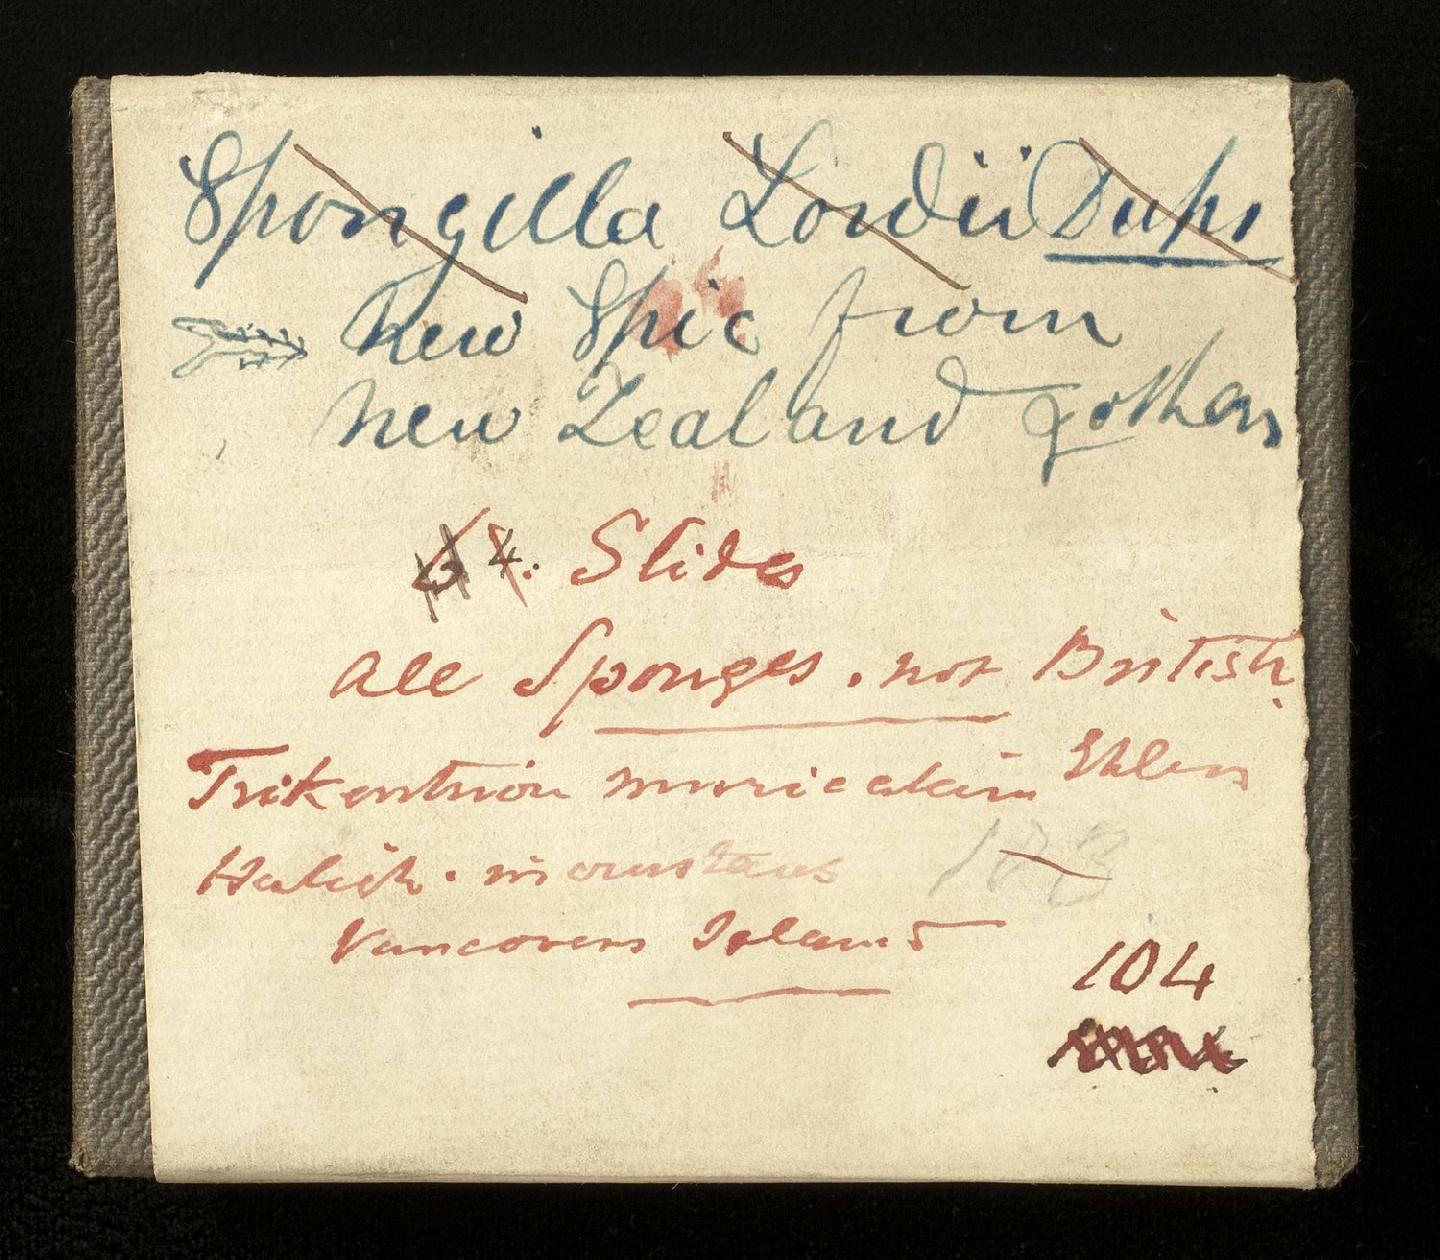 Spongilla Lordii Dups
New Spic from
New Zealand & others
Slides
all Sponges. not British.
Trikentrion muricatum Ehlers
Halich. incrustans
Vancovers Island
104